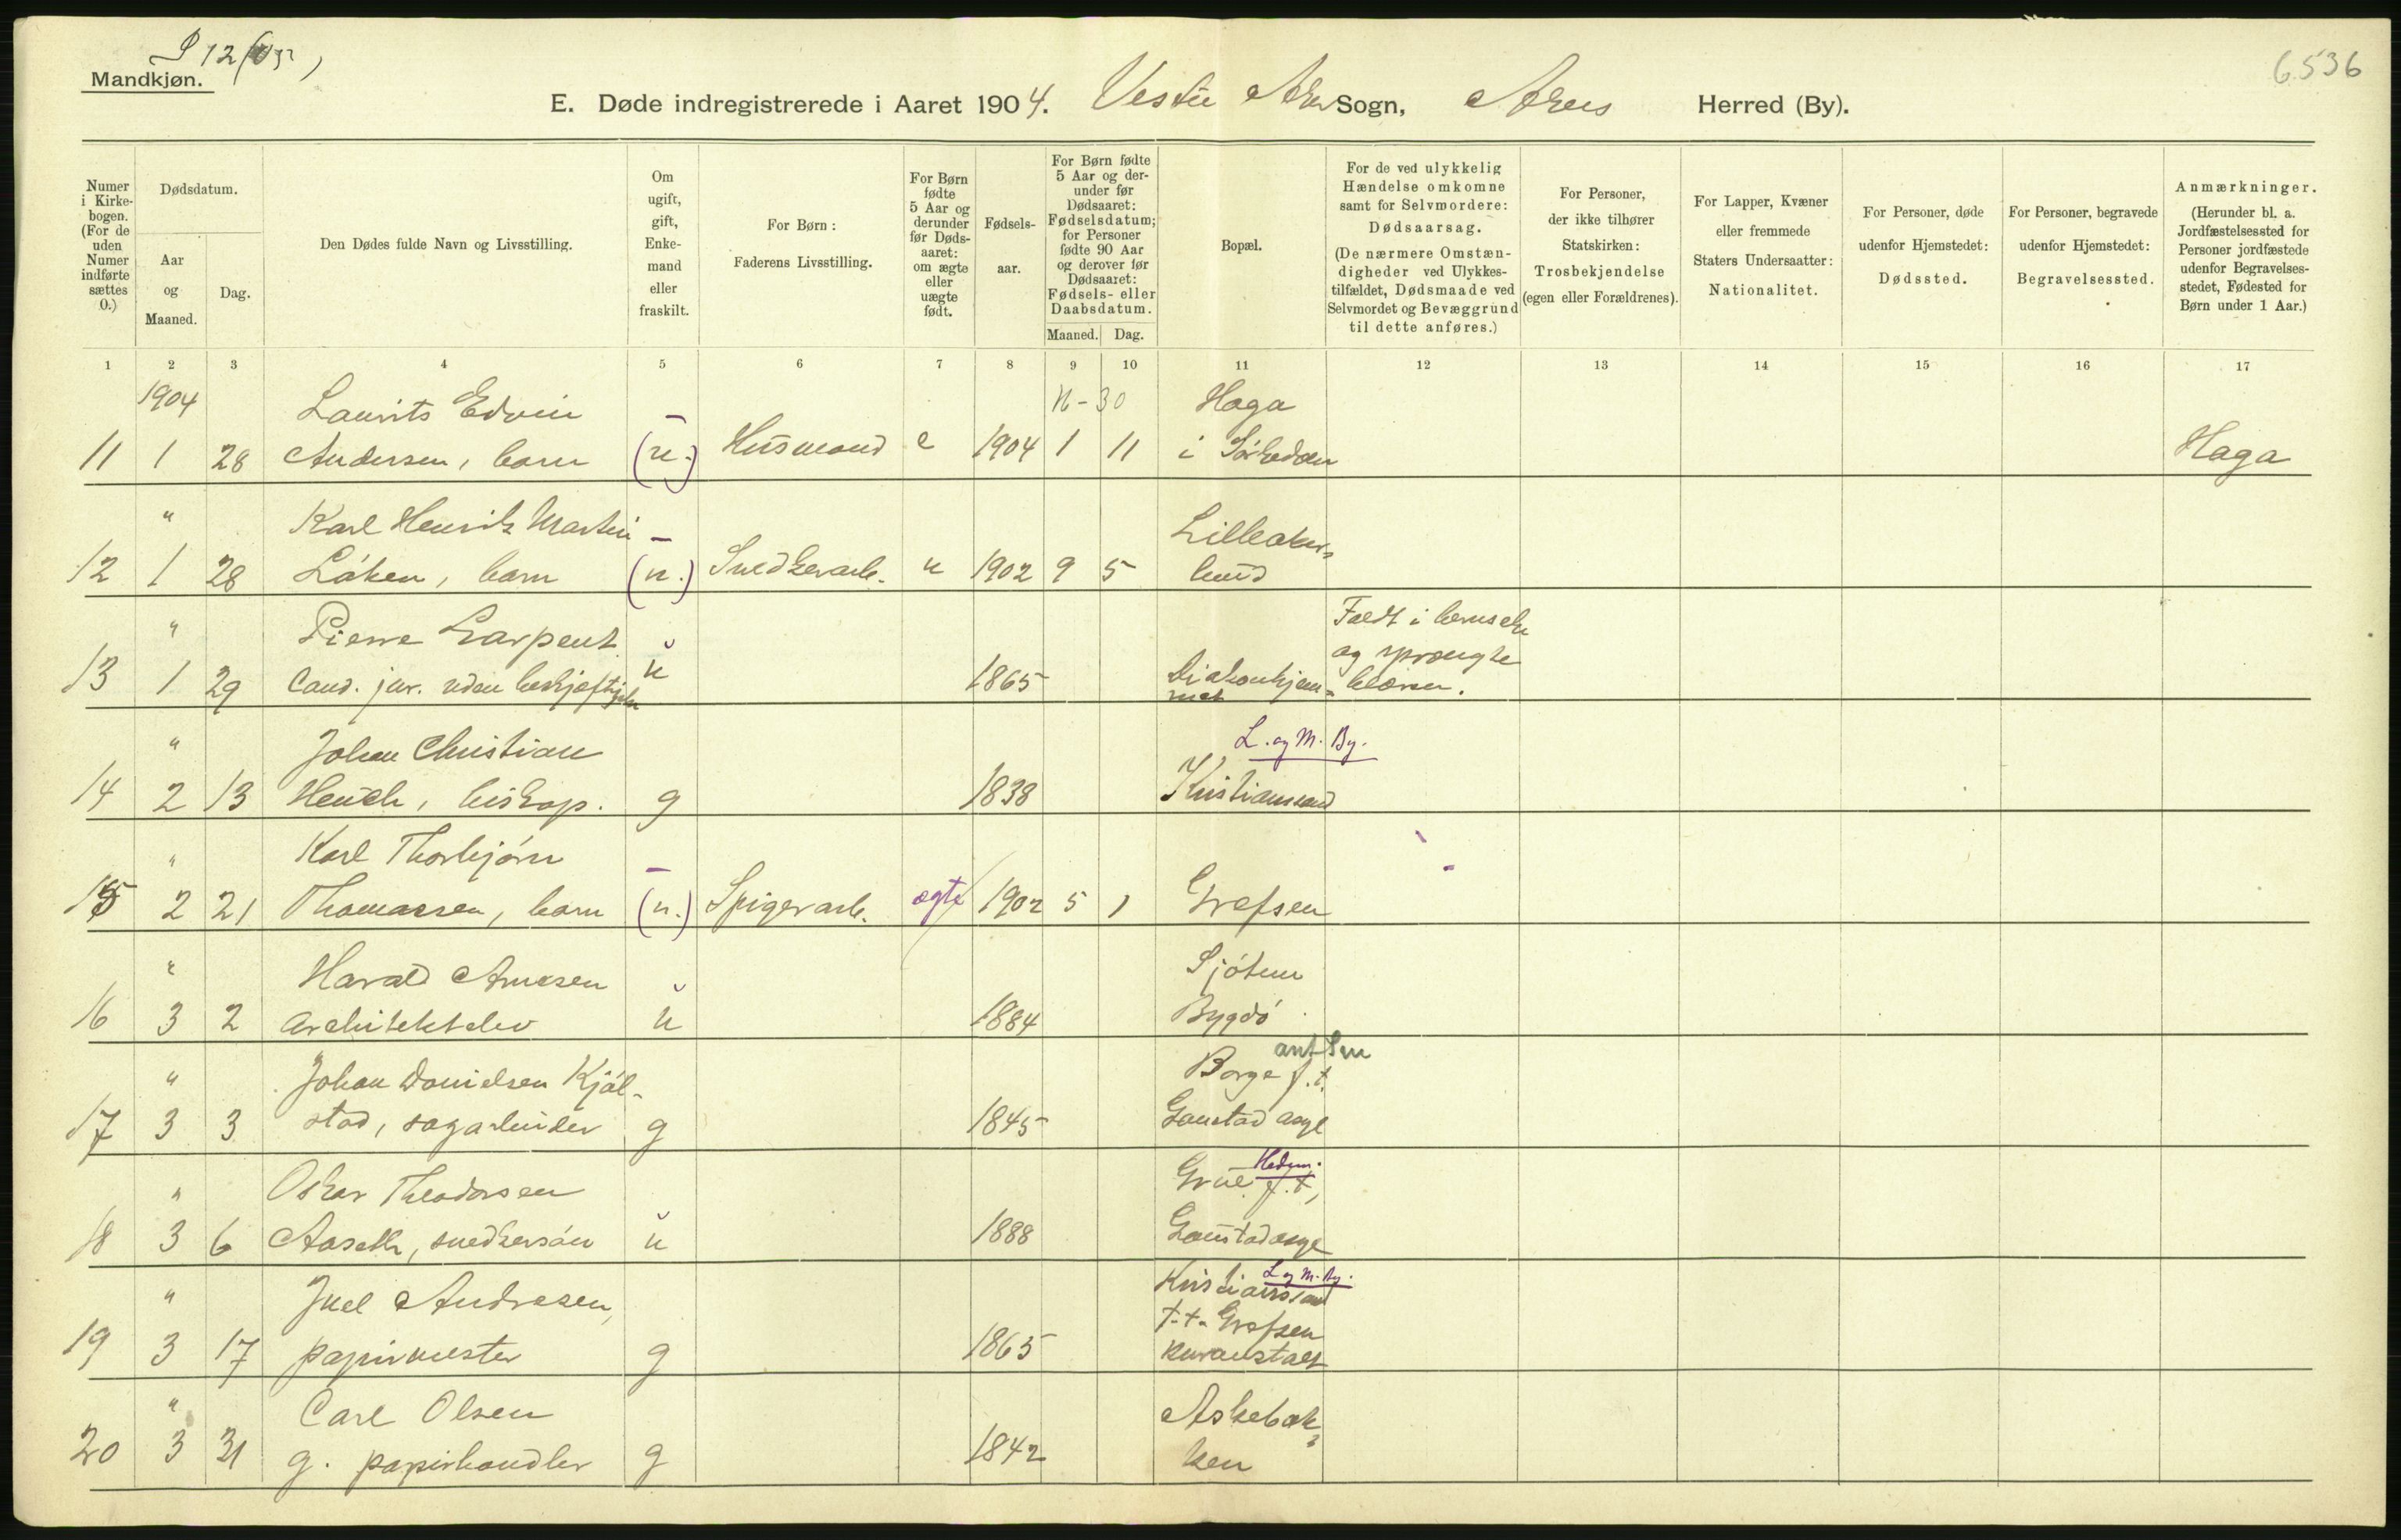 Mandkjøn.
6536
E. Døde indregistrerede i Aaret 1904. Vestre Aker Sogn, Akers Herred (By).
Numer i Kirkebogen. (For de uden Numer indførte sættes 0.)
Dødsdatum.
Aar og Maaned.
Dag.
Den Dødes fulde Navn og Livsstilling.
Om ugift, gift, Enkemand eller fraskilt.
For Børn: Faderens Livsstilling.
For Børn fødte 5 Aar og derunder før Dødsaaret: om ægte eller uægte født.
Fødselsaar.
For Børn fødte 5 Aar og derunder før Dødsaaret: Fødselsdatum; for Personer fødte 90 Aar og derover før Dødsaaret: Fødsels- eller Daabsdatum.
Maaned. Dag.
Bopæl.
For de ved ulykkelig Hændelse omkomne samt for Selvmordere: Dødsaarsag. (De nærmere Omstændigheder ved Ulykkestilfældet, Dødsmaade ved Selvmordet og Bevæggrund til dette anføres.)
For Personer, der ikke tilhører Statskirken: Trosbekjendelse (egen eller Forældrenes).
For Lapper, Kvæner eller fremmede Staters Undersaatter: Nationalitet.
For Personer, døde udenfor Hjemstedet: Dødssted.
For Personer, begravede udenfor Hjemstedet: Begravelsessted.
Anmærkninger. (Herunder bl. a. Jordfæstelsessted for Personer jordfæstede udenfor Begravelsesstedet, Fødested for Børn under 1 Aar.)
1 2 3 4 5 6 7 8 9 10 11 12 13 14 15 16 17
1904 Laurits Edvin - 30 Haga
11 1 28 Andersen, barn (u.) Husmand e 1904 1 11 i Sørkedalen Haga
" Karl Henrik Martin - Lilleakers
12 1 28 Løken, barn (u.) Snedkerarb. u 1902 9 5 brud
" Pierre Larpent Faldt i
og sprængte
13 1 29 Cand. jur. uden beskjæftigelse u 1865 Diakonhjem- blæren.
met
" Johan Christian L. og M. By.
14 2 13 Heuch, biskop. g 1838 Kristianssand
" Karl Thorbjørn -
15 2 21 Thomassen, barn (u.) Spigerarb. ægte 1902 5 1 Grefsen
" Harald Arnesen Sjøtun
16 3 2 Architektelev u 1884 Bygdø
" Johan Danielsen Kjøl- Borge f.t.
17 3 3 stad, sagarbeider g 1845 Gaustad asyl
" Oskar Theodorsen Grue Hedm. f.t,
18 3 6 Aaseth, snedkersøn u 1888 Gaustad asyl
" Juel Andresen, Kristianssand L og M. By.
t.t. Grefsen
19 3 17 papirmester g 1865 kuranstalt
" Carl Olsen Askebæk-
20 3 31 g. papirhandler g 1842 ken